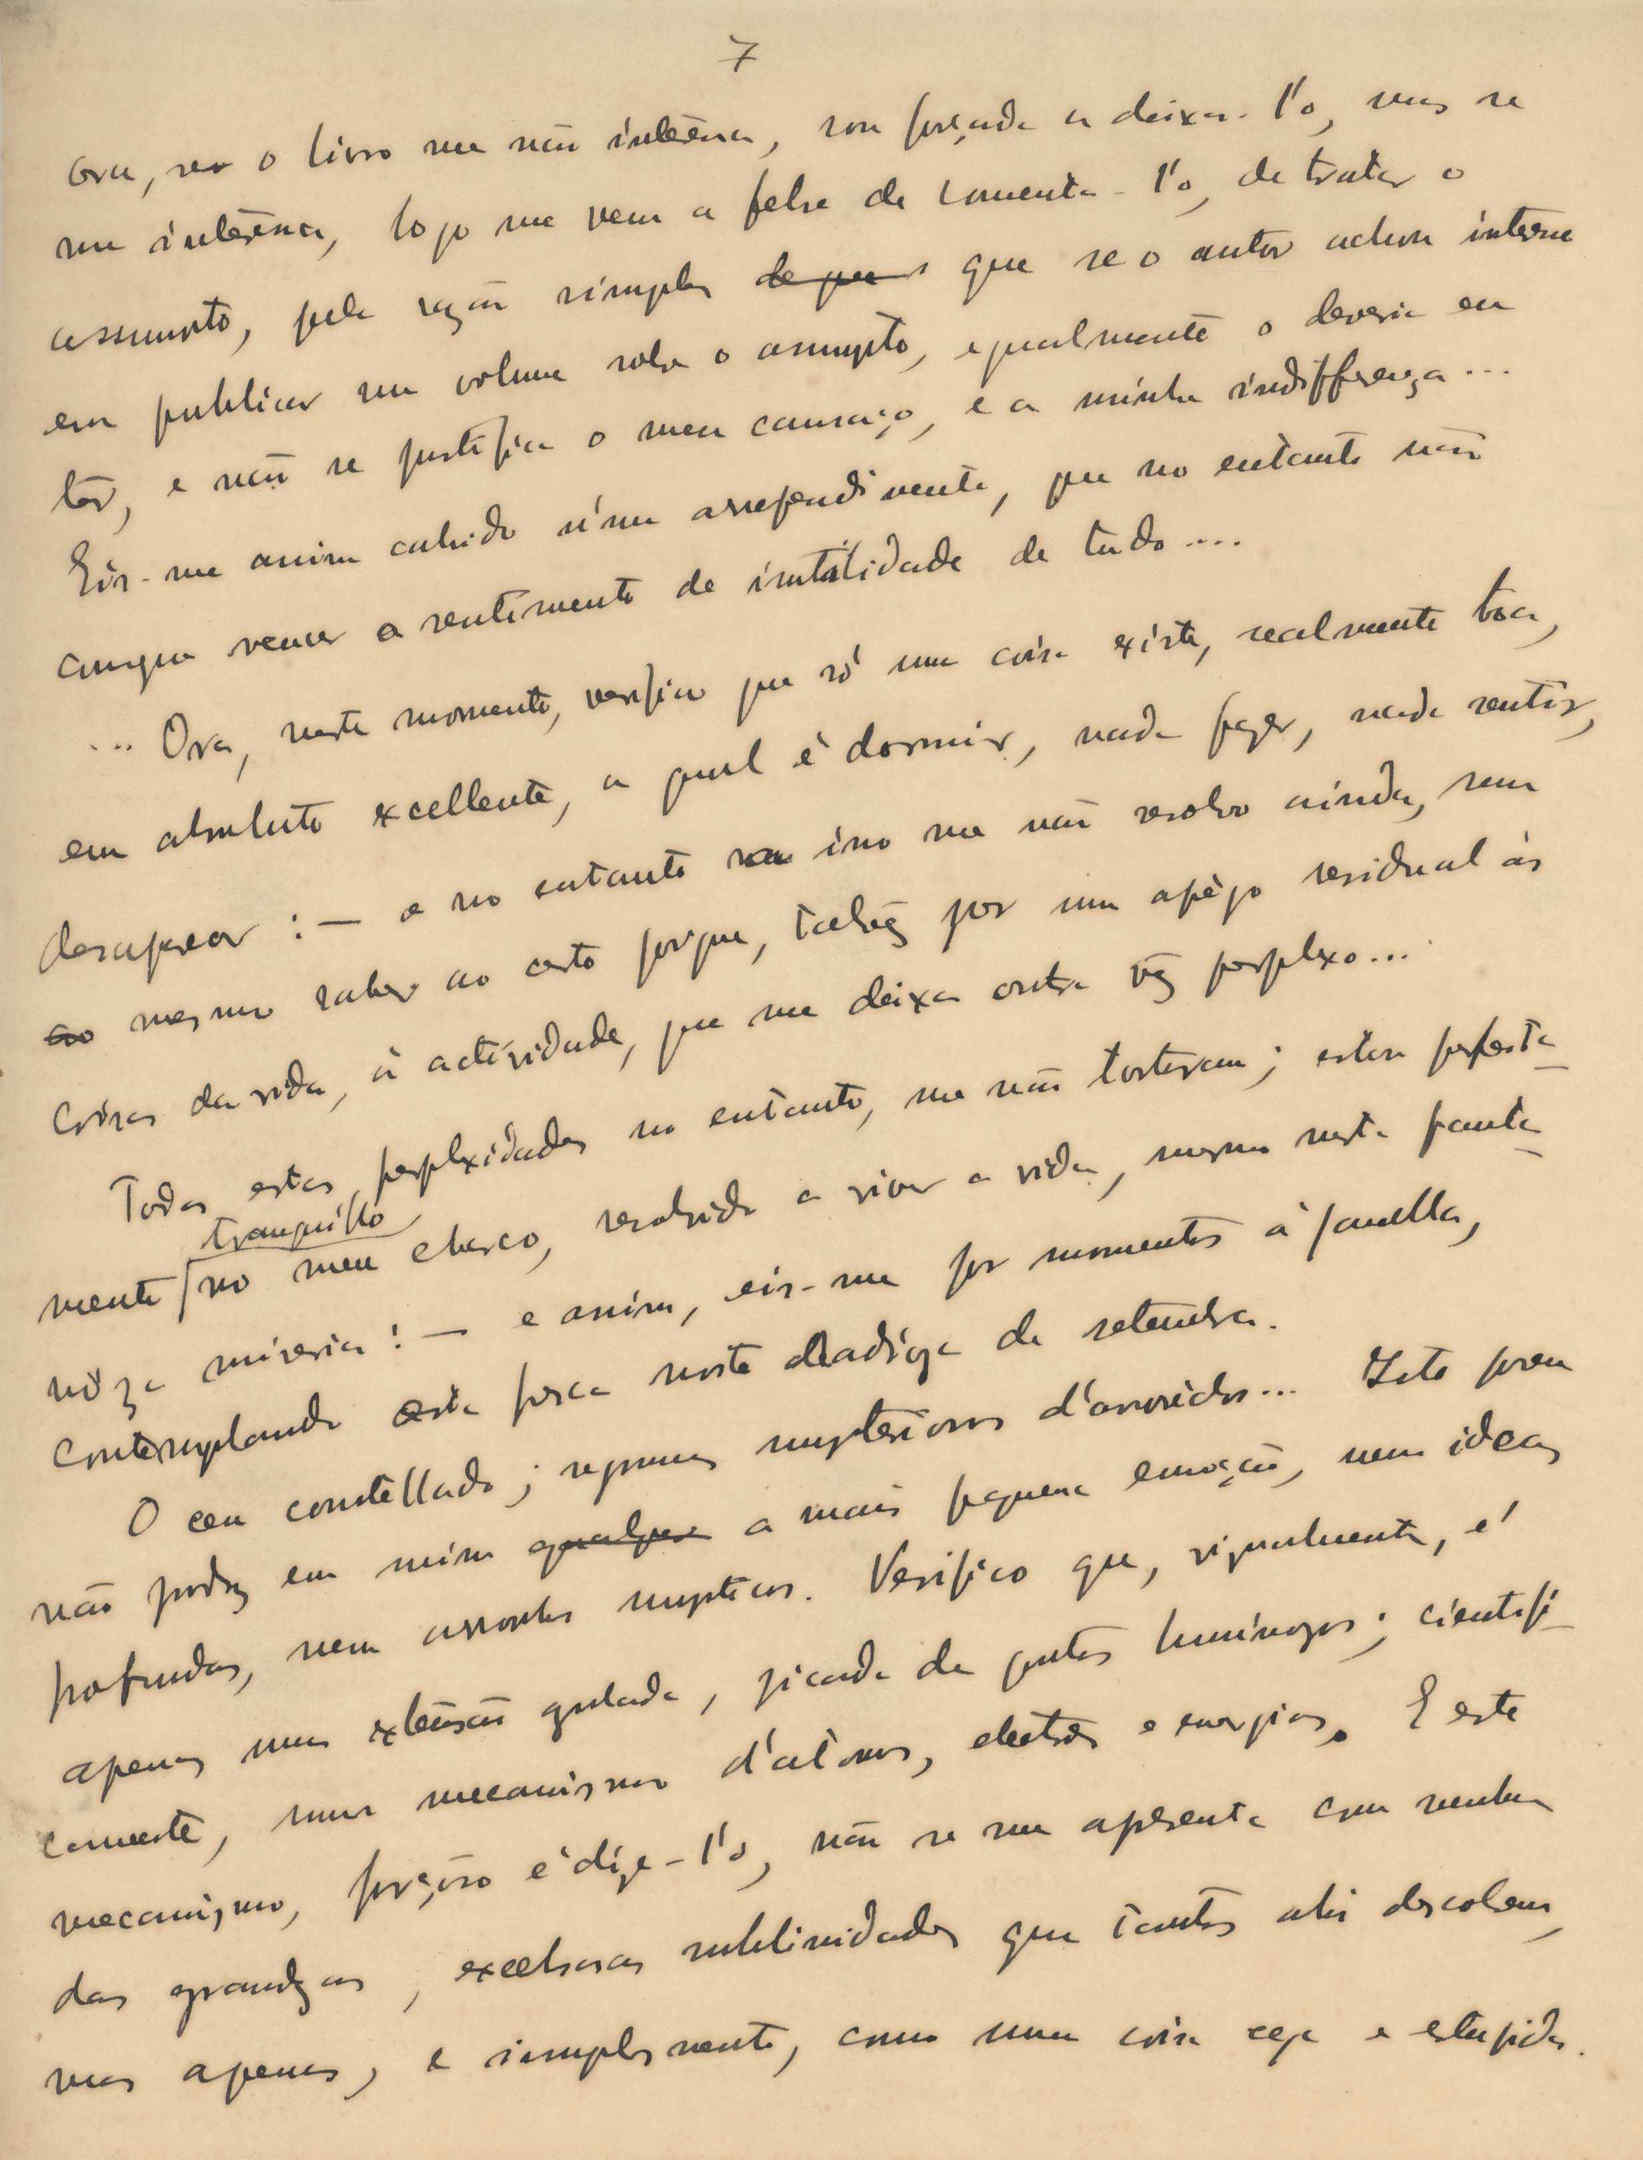 7
ora, se o livro me não interessa, sou forçado a deixa-l'o, mas se
me interessa, logo me vem a febre de comenta-l'o, de tratar o
assumpto, pela razão simples de que que se o autor achou interesse
em publicar um volume sobre o assumpto, egualmente o deveria eu
ter, e não se justifica o meu cansaço, e a minha indifferença...
Eis-me assim cahido n'um arrependimento, que no entanto não
consegue vencer o sentimento de inutilidade de tudo....
... Ora, neste momento, verifico que só uma coisa existe, realmente boa,
em absoluto excellente, a qual é dormir, nada fazer, nada sentir,
desaparecer : — e no entanto a isso me não resolvo ainda, sem
mesmo saber ao certo porque, talvez por um apêgo residual às
coisas da vida, à actividade, que me deixa outra vez perplexo...
Todas estas perplexidades no entanto, me não torturam; estou perfeita-
mente tranquillo no meu charco, resolvido a viver a vida, mesmo nesta fanta-
nosa miseria : — e assim, eis-me por momentos à janella,
contemplando esta fosca noite de setembro.
O ceu constellado; segundos mysteriosos d'ouvidos... Isto porem
não produz em mim qualquer a mais pequena emoção, nem ideas
profundas, nem assombros mysticos. Verifico que, visualmente, é
apenas uma extensão gelada, picada de pontos luminosos; cientifi-
camente, um mecanismo d'atomos, electrões e energias. E este
mecanismo, forçoso é dize-l'o, não se me apresenta com nenhuma
das grandezas, excelsas sublimidades que tantos ahi descobrem,
mas apenas, e simplesmente, como uma coisa cega e estupida.